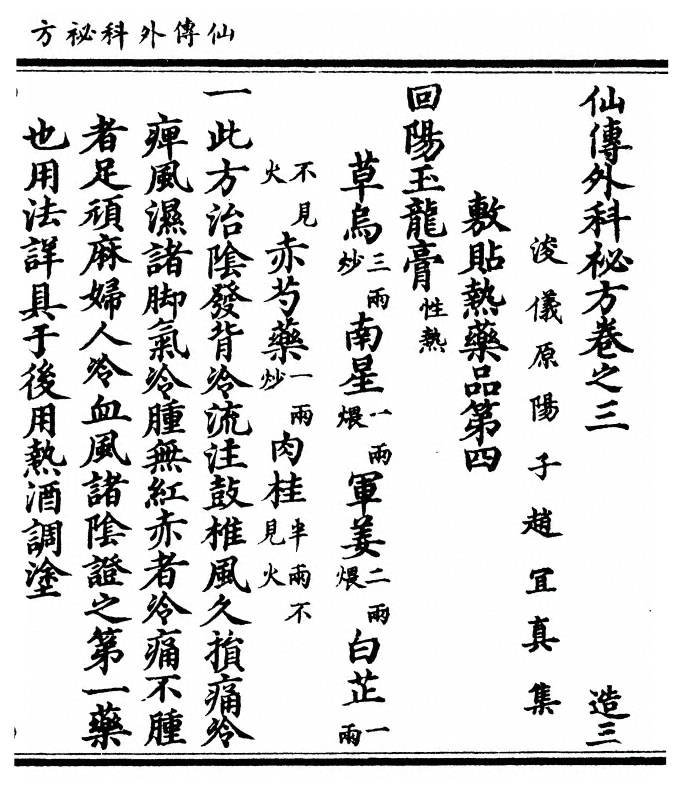 仙傳外科祕方
仙傳外科祕方卷之三 造三
浚儀原陽子趙冝真集
敷貼熱藥品第四
回陽玉龍膏性熱
草烏三兩炒南星一兩煨軍姜二兩煨白芷一兩
不見火赤芍藥一兩炒肉桂半兩不見火
一此方治陰發背冷流注鼓椎風久損痛冷
痺風濕諸脚氣冷腫無紅赤者冷痛不腫
者足頑麻婦人冷血風諸陰證之第一藥
也用法詳具于後用熱酒調塗